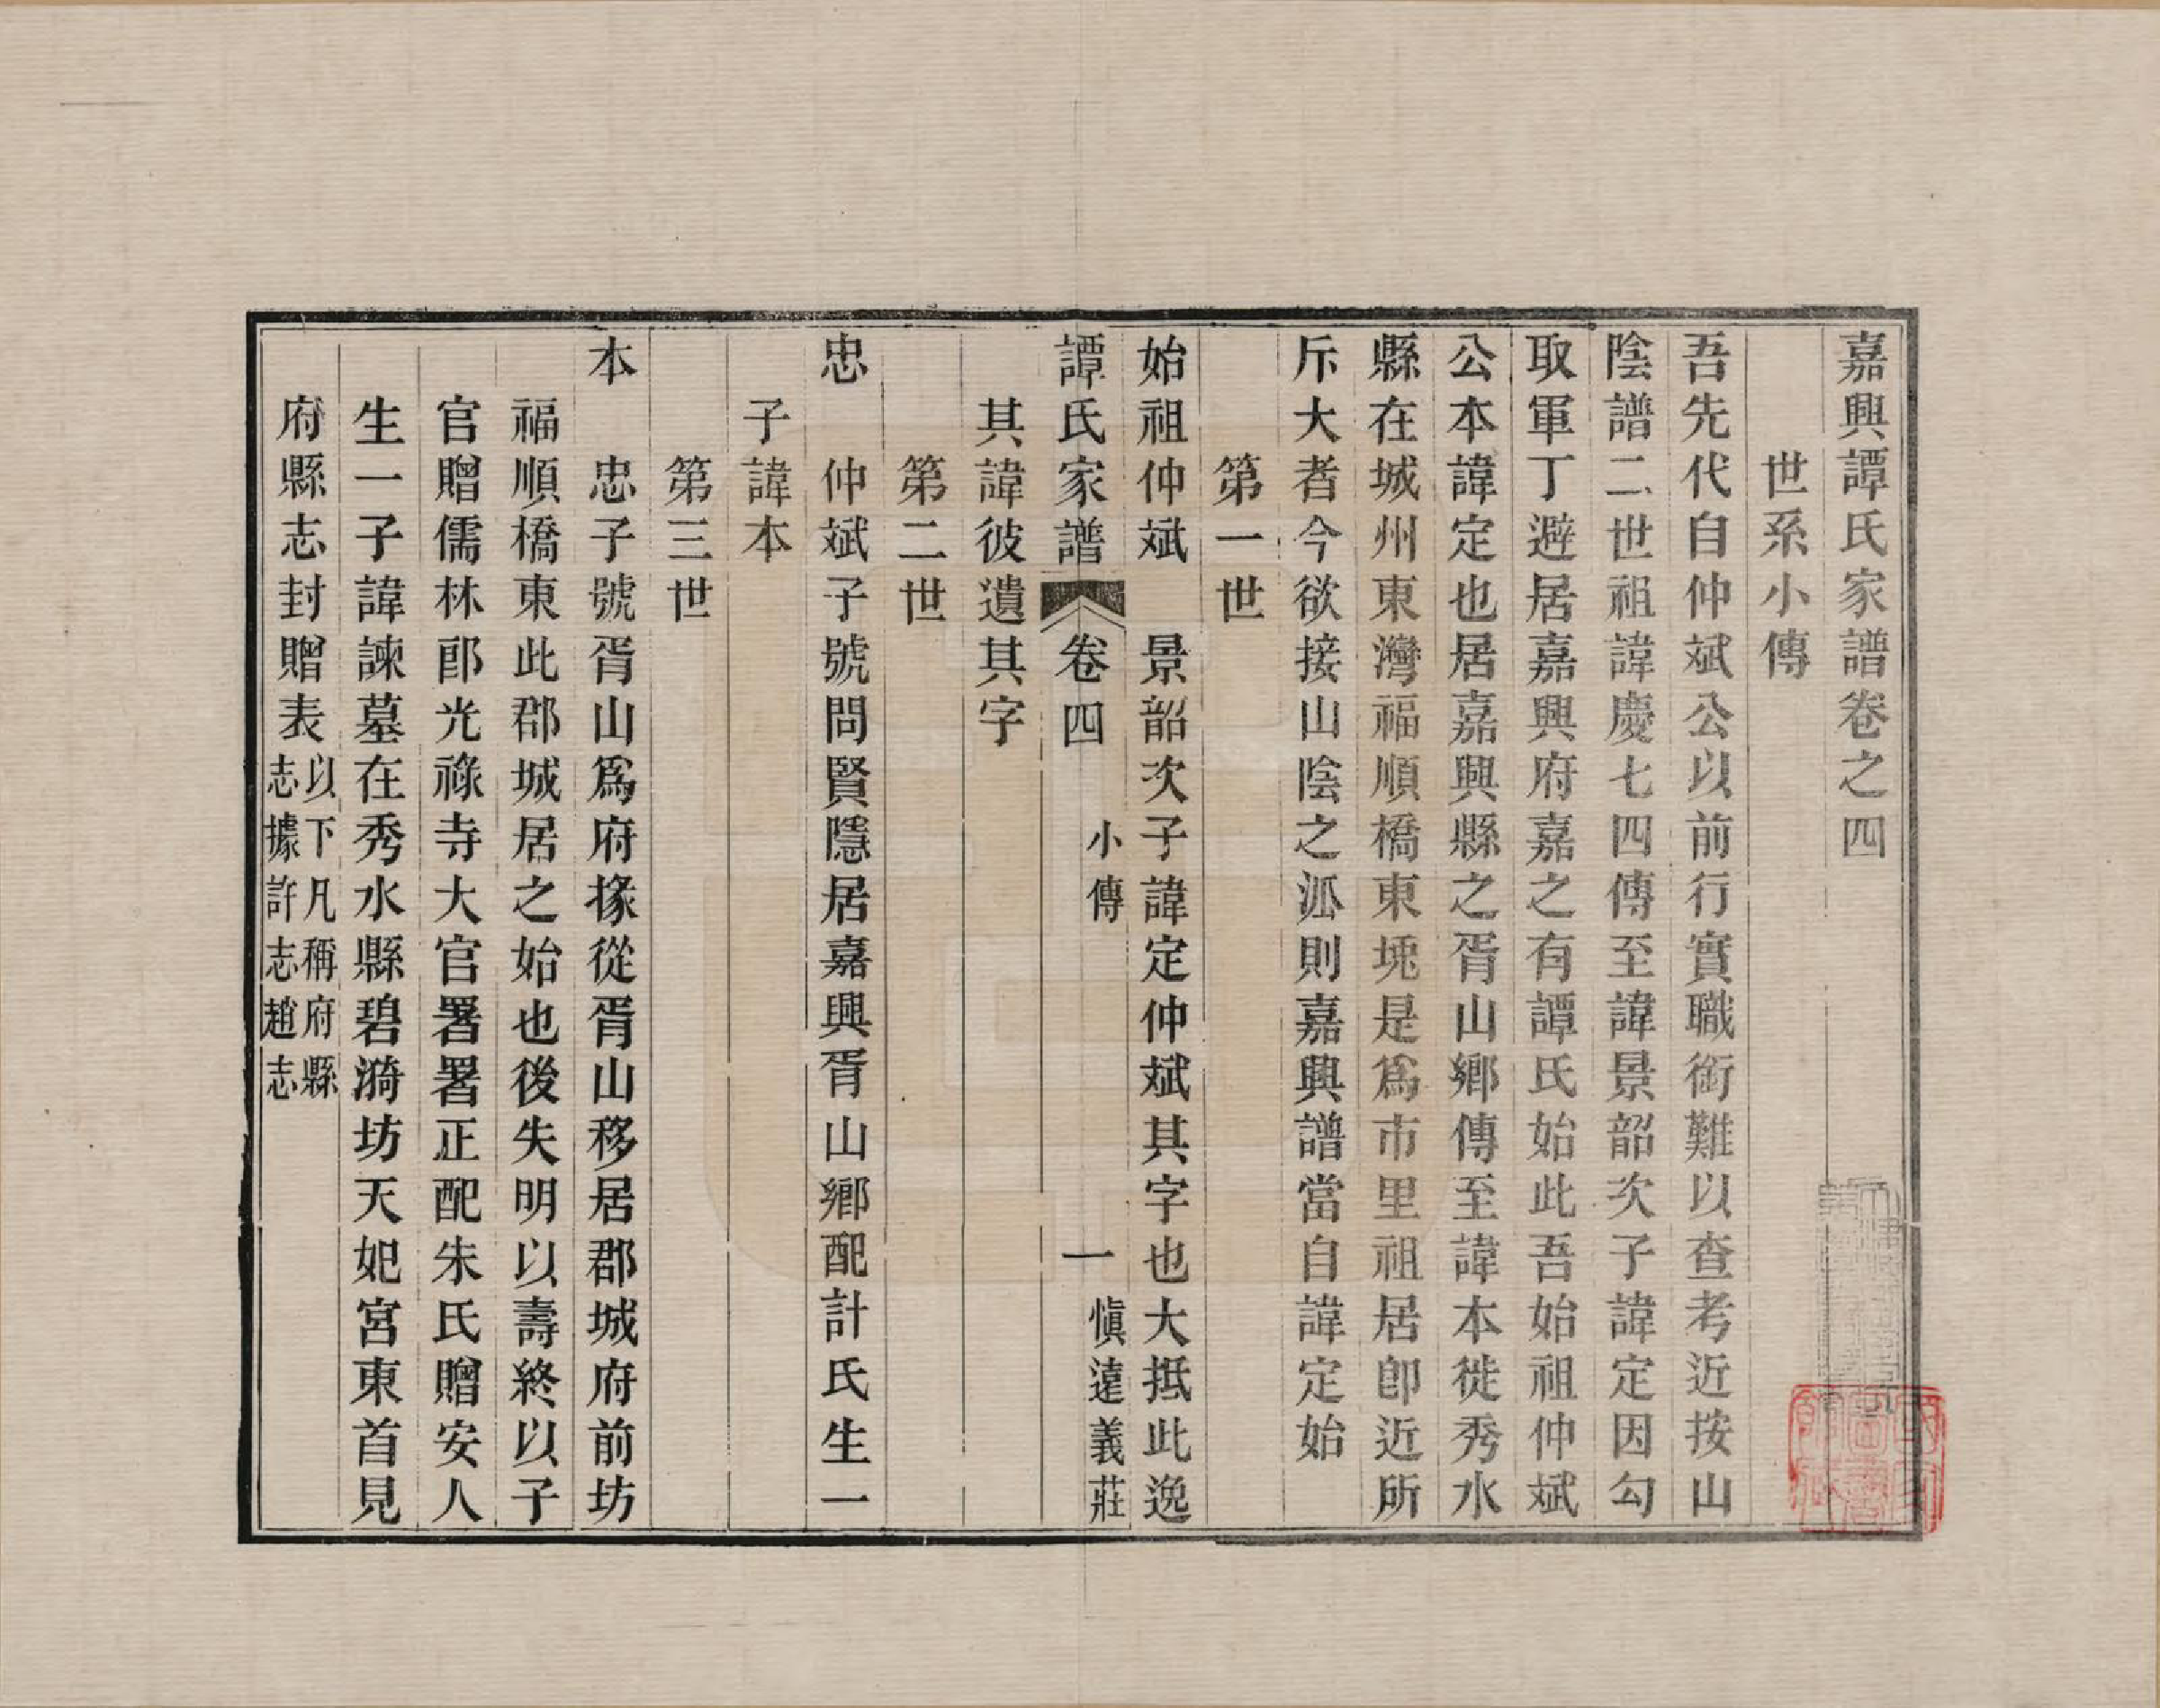 嘉興譚氏家譜卷之四
世系小傳
吾先代自仲斌公以前行實職銜難以查考近按山
陰譜二世祖諱慶七四傳至諱景韶次子諱定因勾
取軍丁避居嘉興府嘉之有譚氏始此吾始祖仲斌
公本諱定也居嘉興縣之胥山鄉傳至諱本徙秀水
縣在城州東灣福順橋東堍是為市里祖居卽近所
斥大者今欲接山陰之派則嘉興譜當自諱定始
第一世
始祖仲斌　景韶次子諱定仲斌其字也大抵此逸
譚氏家譜　卷四　小傳　一　慎遠義莊
其諱彼遺其字
第二世
忠　仲斌子號問賢隱居嘉興胥山鄉配計氏生一
子諱本
第三世
本　忠子號胥山爲府掾從胥山移居郡城府前坊
福順橋東此郡城居之始也後失明以壽終以子
官贈儒林郎光祿寺大官署署正配朱氏贈安人
生一子諱諫墓在秀水縣碧漪坊天妃宮東首見
府縣志封贈表以下凡稱府縣
志據許志趙志